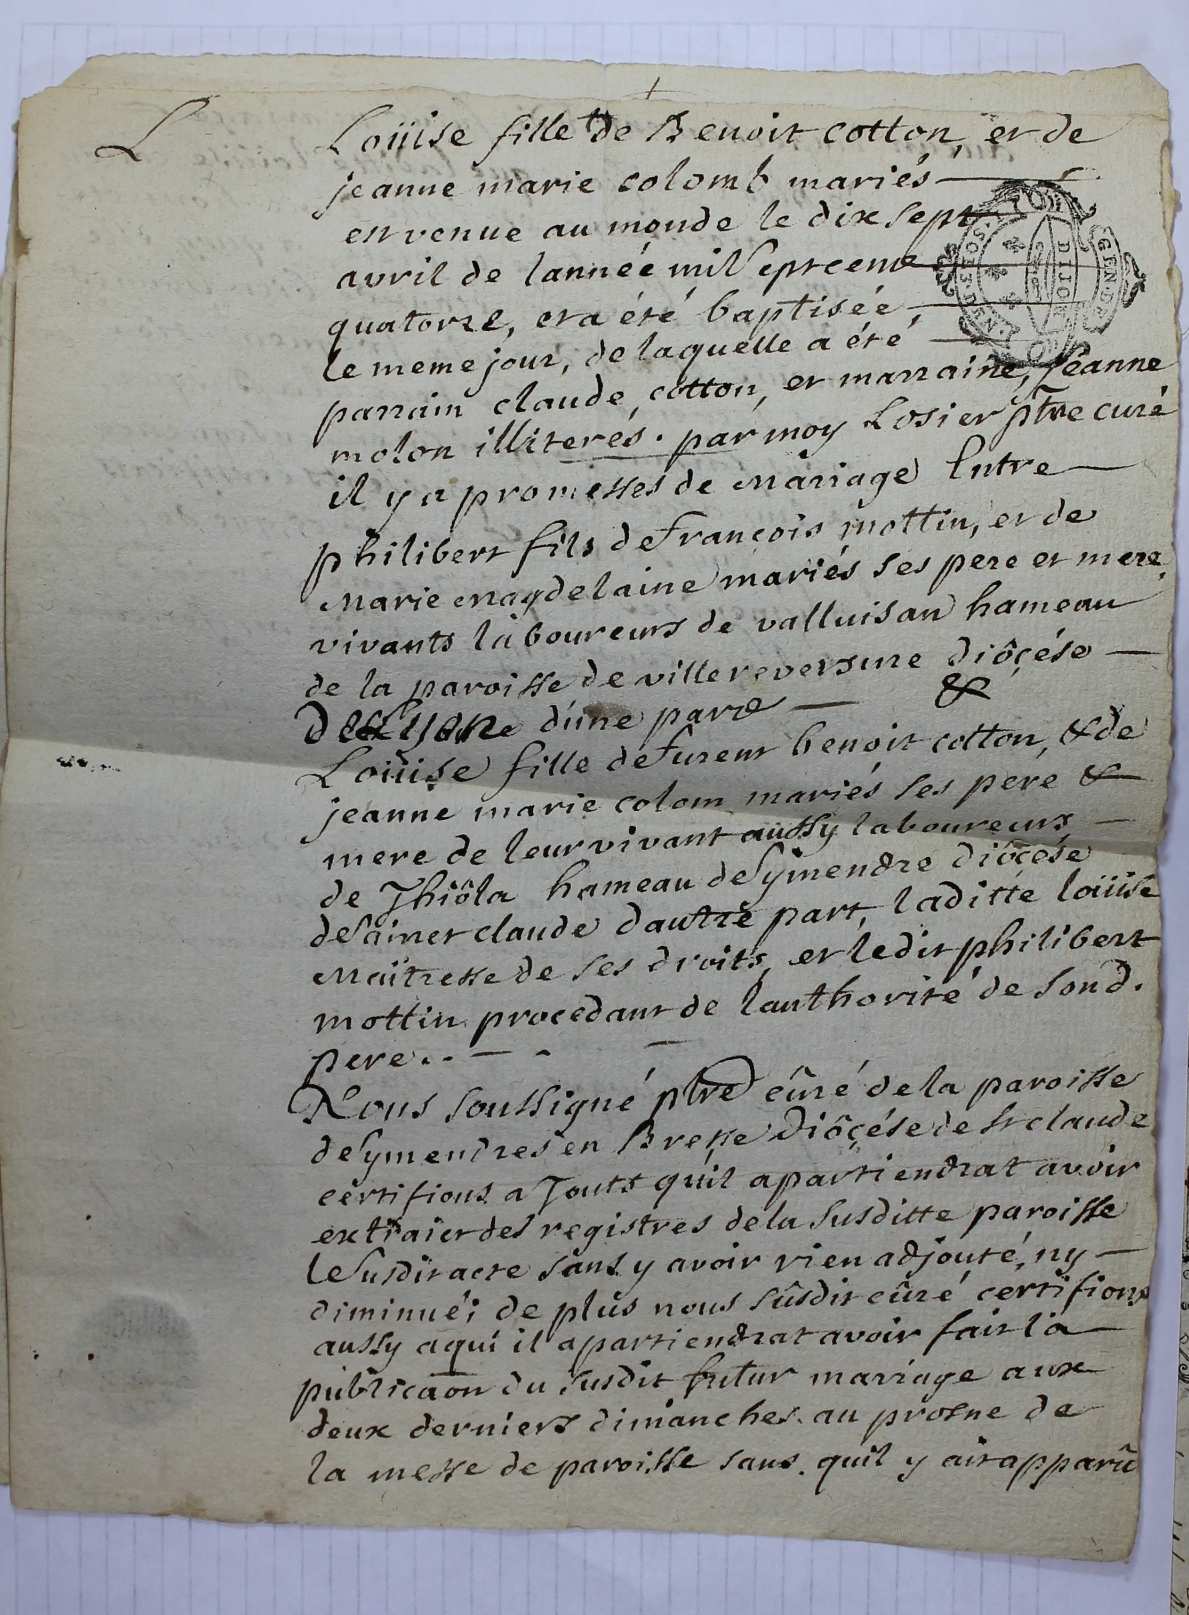 L
Loüise fille de Benoit cotton, et de
jeanne marie colomb mariés
est venue au monde le dix sept
avril de lannéé mil sept cent
quatorze, et a été baptiséé,
le meme jour, de laquelle a été
parrain claude, cotton, et marraine, Jéanne
molon illiterés. par moy Losier ptre curé
il y a promesses de Mariage Entre
philibert fils de françois mottin, et de
Marie Magdelaine mariés ses pere et mere
vivants làboureurs de valluisan hameau
de la paroisse de villereversure diôçése
de Lyon d'une part &
Loüise fille de fureut benoit cotton, & de
jeanne marie colom mariés ses peré &
mere de leur vivant aussy laboureurs
de Thiôla hameau de Symendre diôçése
de Sainct claude dautre part, laditte loüise
Maîtresse de ses droits, et ledit philibert
mottin procedant de lauthorité de son d.
pere..
Nous soussigné ptre cûré de la paroisse
de Symendres en Bresse diôçése de st claude
certifions a Touts quil apartiendrat avoir
extraict des registres de la susditte paroisse
le susdit acte sans y avoir rien adjouté, ny
diminué; de plus nous sûsdit cûré certifions
aussy a qui il apartiendrat avoir fait la
publicaon du susdit futur mariage aux
deux derniers dimanches au prosne de
la messe de paroisse sans quil y ait apparû
GEN. D
DIJON